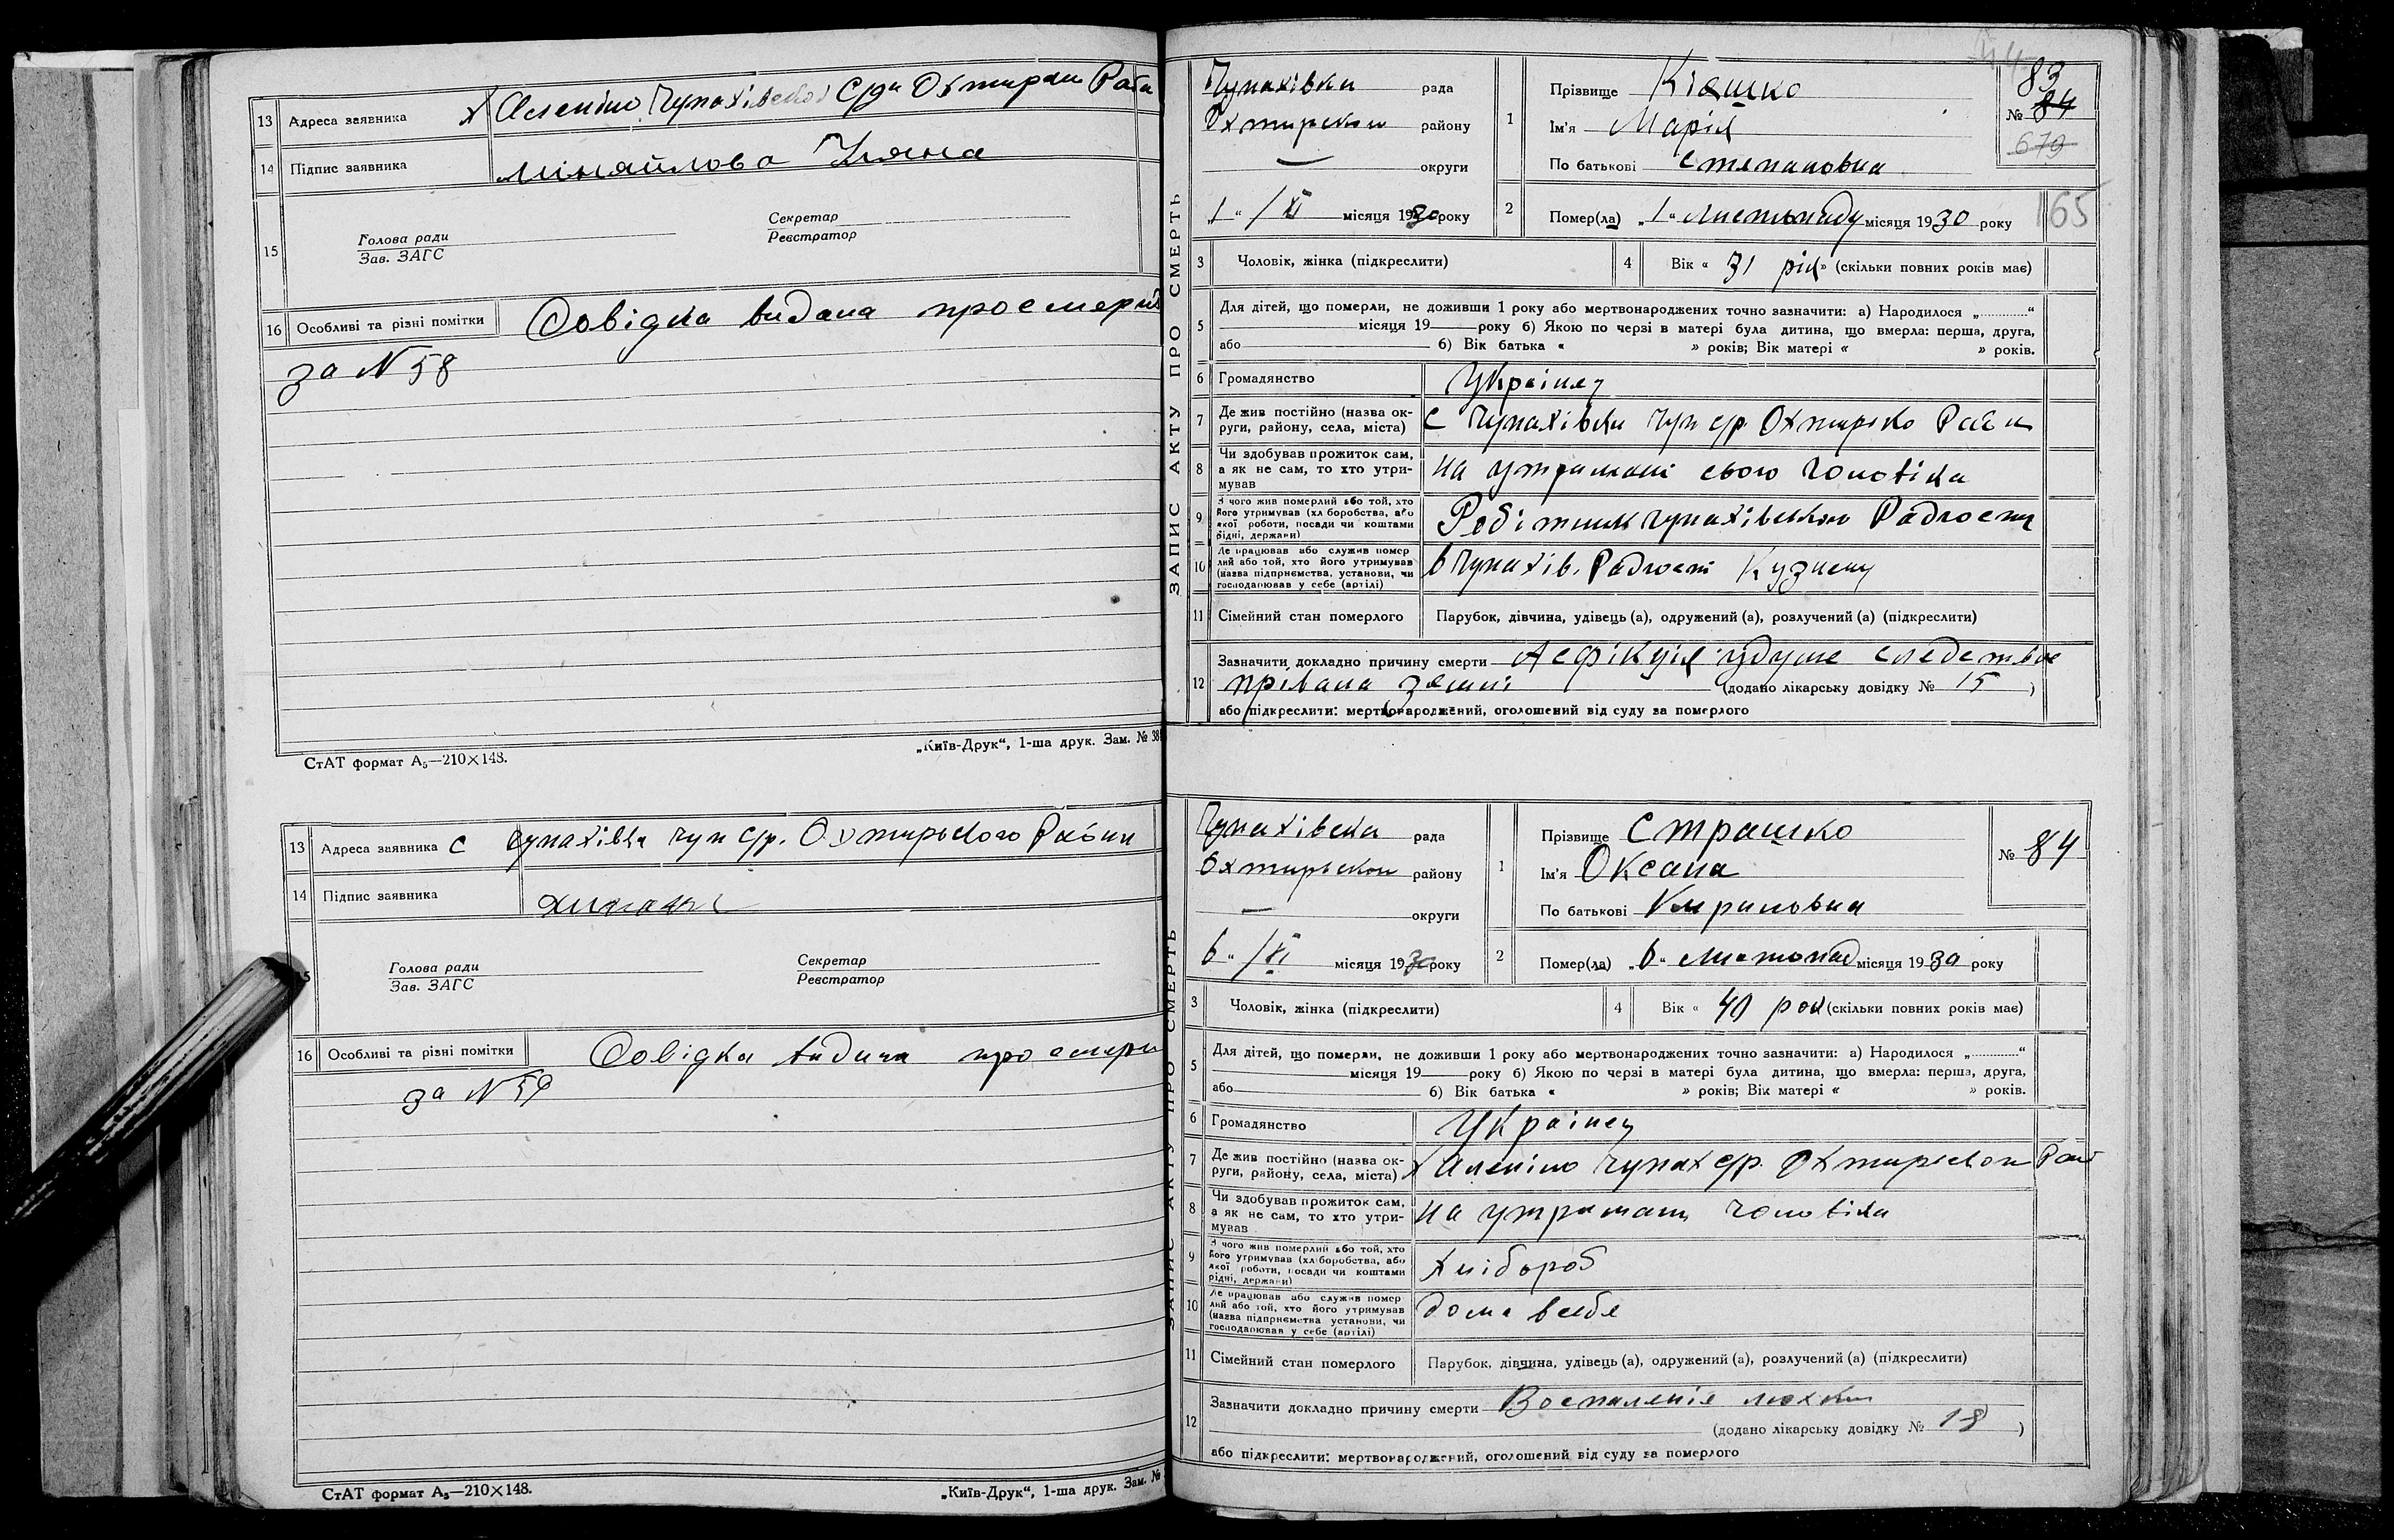 13 Адреса заявника х Чупахівської с/ди Охтирськ Рай
14 Підпис заявника Міняйлова Уляна
15 Голова ради
Зав. ЗАГС
Секретар
Реєстратор
16 Особливі та різні помітки Довідка видана про смерть
за N 58
СтАТ формат А₅—210×148.
„Київ-Друк“, 1-ша друк. Зам. № 38
13 Адреса заявника с Чупахівка Чуп с/р. Охтирського Району
14 Підпис заявника
Голова ради
Зав. ЗАГС
Секретар
Реєстратор
16 Особливі та різні помітки Довідка видана про смерть
за N 59
СтАТ формат А₅—210×148.
„Київ-Друк“, 1-ша друк. Зам. №
ЗАПИС АКТУ ПРО СМЕРТЬ
Чупахівки рада
Охтирськои району
— округи
„1“ /XI місяця 1930 року
1 Прізвище Кіяшко
Ім'я Марія
По батькові Степановна
83
№ 84
679
2 Помер(ла) „1“ Листопаду місяця 1930 року
165
3 Чоловік, жінка (підкреслити)
4 Вік « 31 рік » (скільки повних років має)
5 Для дітей, що померли, не доживши 1 року або мертвонароджених точно зазначити: а) Народилося „............“
місяця 19 року б) Якою по черзі в матері була дитина, що вмерла: перша, друга,
або 6) Вік батька « » років; Вік матері « » років.
6 Громадянство Українец
7 Де жив постійно (назва округи, району, села, міста) с Чупахівки Чуп с/р. Охтирсько Район
8 Чи здобував прожиток сам, а як не сам, то хто утримував на утримані свого чоловіка
9 З чого жив померлий або той, хто його утримував (хліборобства, або якої роботи, посади чи коштами рідні, держави) Робітник Чупахівського Радгоспу
10 Де працював або служив померлий або той, хто його утримував (назва підприємства, установи, чи господарював у себе (артілі) в Чупахів. Радгосп Кузнецу
11 Сімейний стан померлого Парубок, дівчина, удівець (а), одружений (а), розлучений (а) (підкреслити)
12 Зазначити докладно причину смерти Асфікція
(додано лікарську довідку № 15 )
або підкреслити: мертвонароджений, оголошений від суду за померлого
ЗАПИС АКТУ ПРО СМЕРТЬ
Чупахівска рада
Охтирьскои району
— округи
6 “ /XI місяця 1930 року
1 Прізвище Страшко
Ім'я Оксана
По батькові Кириловна
№ 84
2 Помер(ла) „6“ Листопад місяця 1930 року
3 Чоловік, жінка (підкреслити)
4 Вік « 40 рок (скільки повних років має)
5 Для дітей, що померли, не доживши 1 року або мертвонароджених точно зазначити: а) Народилося „............“
місяця 19 року б) Якою по черзі в матері була дитина, що вмерла: перша, друга,
або 6) Вік батька « » років; Вік матері « » років.
6 Громадянство Українец
7 Де жив постійно (назва округи, району, села, міста) х Чупах с/р. Охтирьскои Рай
8 Чи здобував прожиток сам, а як не сам, то хто утримував на утриманн чоловіка
9 З чого жив померлий або той, хто його утримував (хліборобства, або якої роботи, посади чи коштами рідні, держави) Хлібороб
10 Де працював або служив померлий або той, хто його утримував (назва підприємства установи, чи господарював у себе (артілі) дома в себе
11 Сімейний стан померлого Парубок, дівчина, удівець (а), одружений (а), розлучений (а) (підкреслити)
12 Зазначити докладно причину смерти Воспаленія
(додано лікарську довідку № 18 )
або підкреслити: мертвонароджений, оголошений від суду за померлого